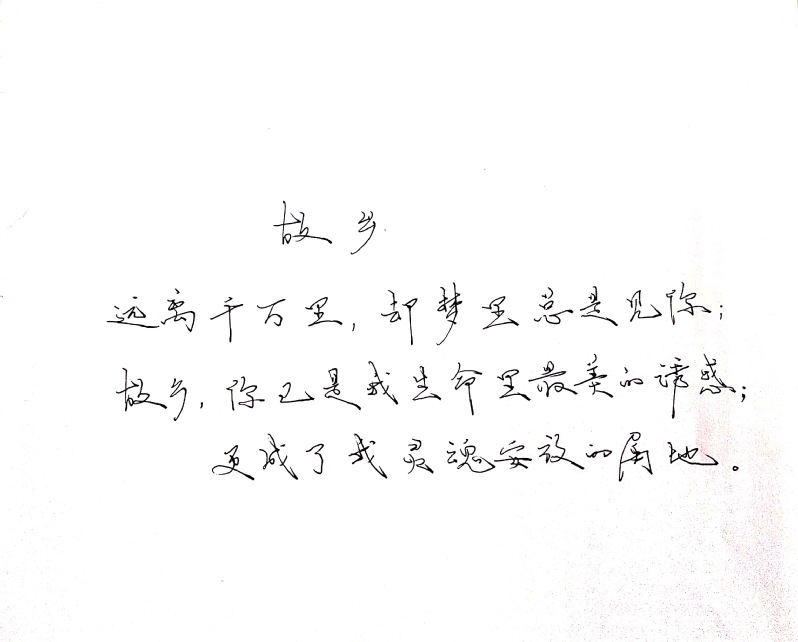 故乡
远离千万里，却梦里总是见你；
故乡，你已是我生命里最美的诱惑；
更成了我灵魂安放的属地。